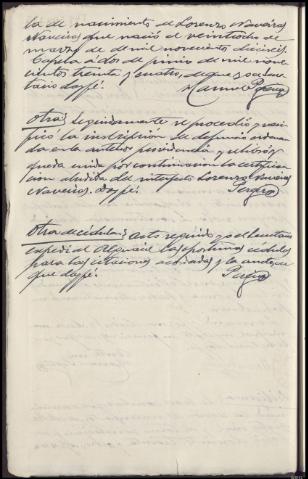 ta de nacimiento de Lorenzo Naveiros
Naveiros que nació el veintiocho de
marzo de mil novecientos dieciseis.
Capela a dos de junio de mil nove
cientos treinta y cuatro, de que yo secre
tario doy fe.
Otra: Seguidamente se procedió y veri
ficó la inscripción de defunción ordena
da en la anterior providencia y
queda unida por continuación la certifica
ción aludida del interfecto Lorenzo Naveiros
Naveiros. Doy fe.
Otra de cédulas: Acto seguido yo el Secretario
expedí al Alguacil las oportunas cédulas
para las citaciones acordadas y la anterior
que doy fe.